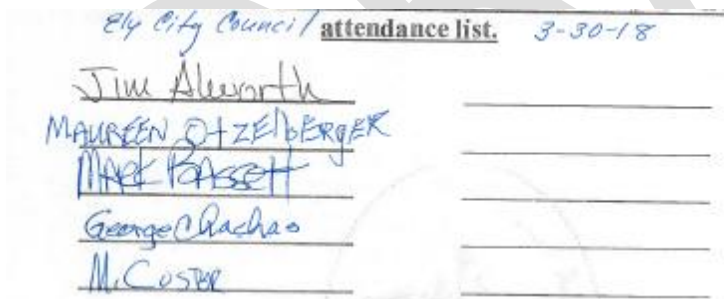 Ely City Council attendance list. 3-30-18
Jim Alworth
MAUREEN OtzelbERgER
MARK BASSETT
George Chachas
M. CUSTER